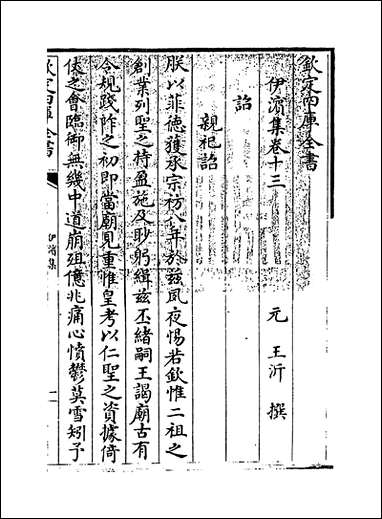 欽定四庫全書
伊濱集卷十三
元 王沂 撰
詔
親祀詔
朕以菲德獲承宗祊八年於兹夙夜惕若欽惟二祖之
創業列聖之持盈施及眇躬緝兹丕緒嗣王謁廟古有
令規踐阼之初即當廟見重惟皇考以仁聖之資據倚
伏之會臨御無幾中道崩殂億兆痛心憤鬱莫雪矧予
欽定四庫全書
伊濱集